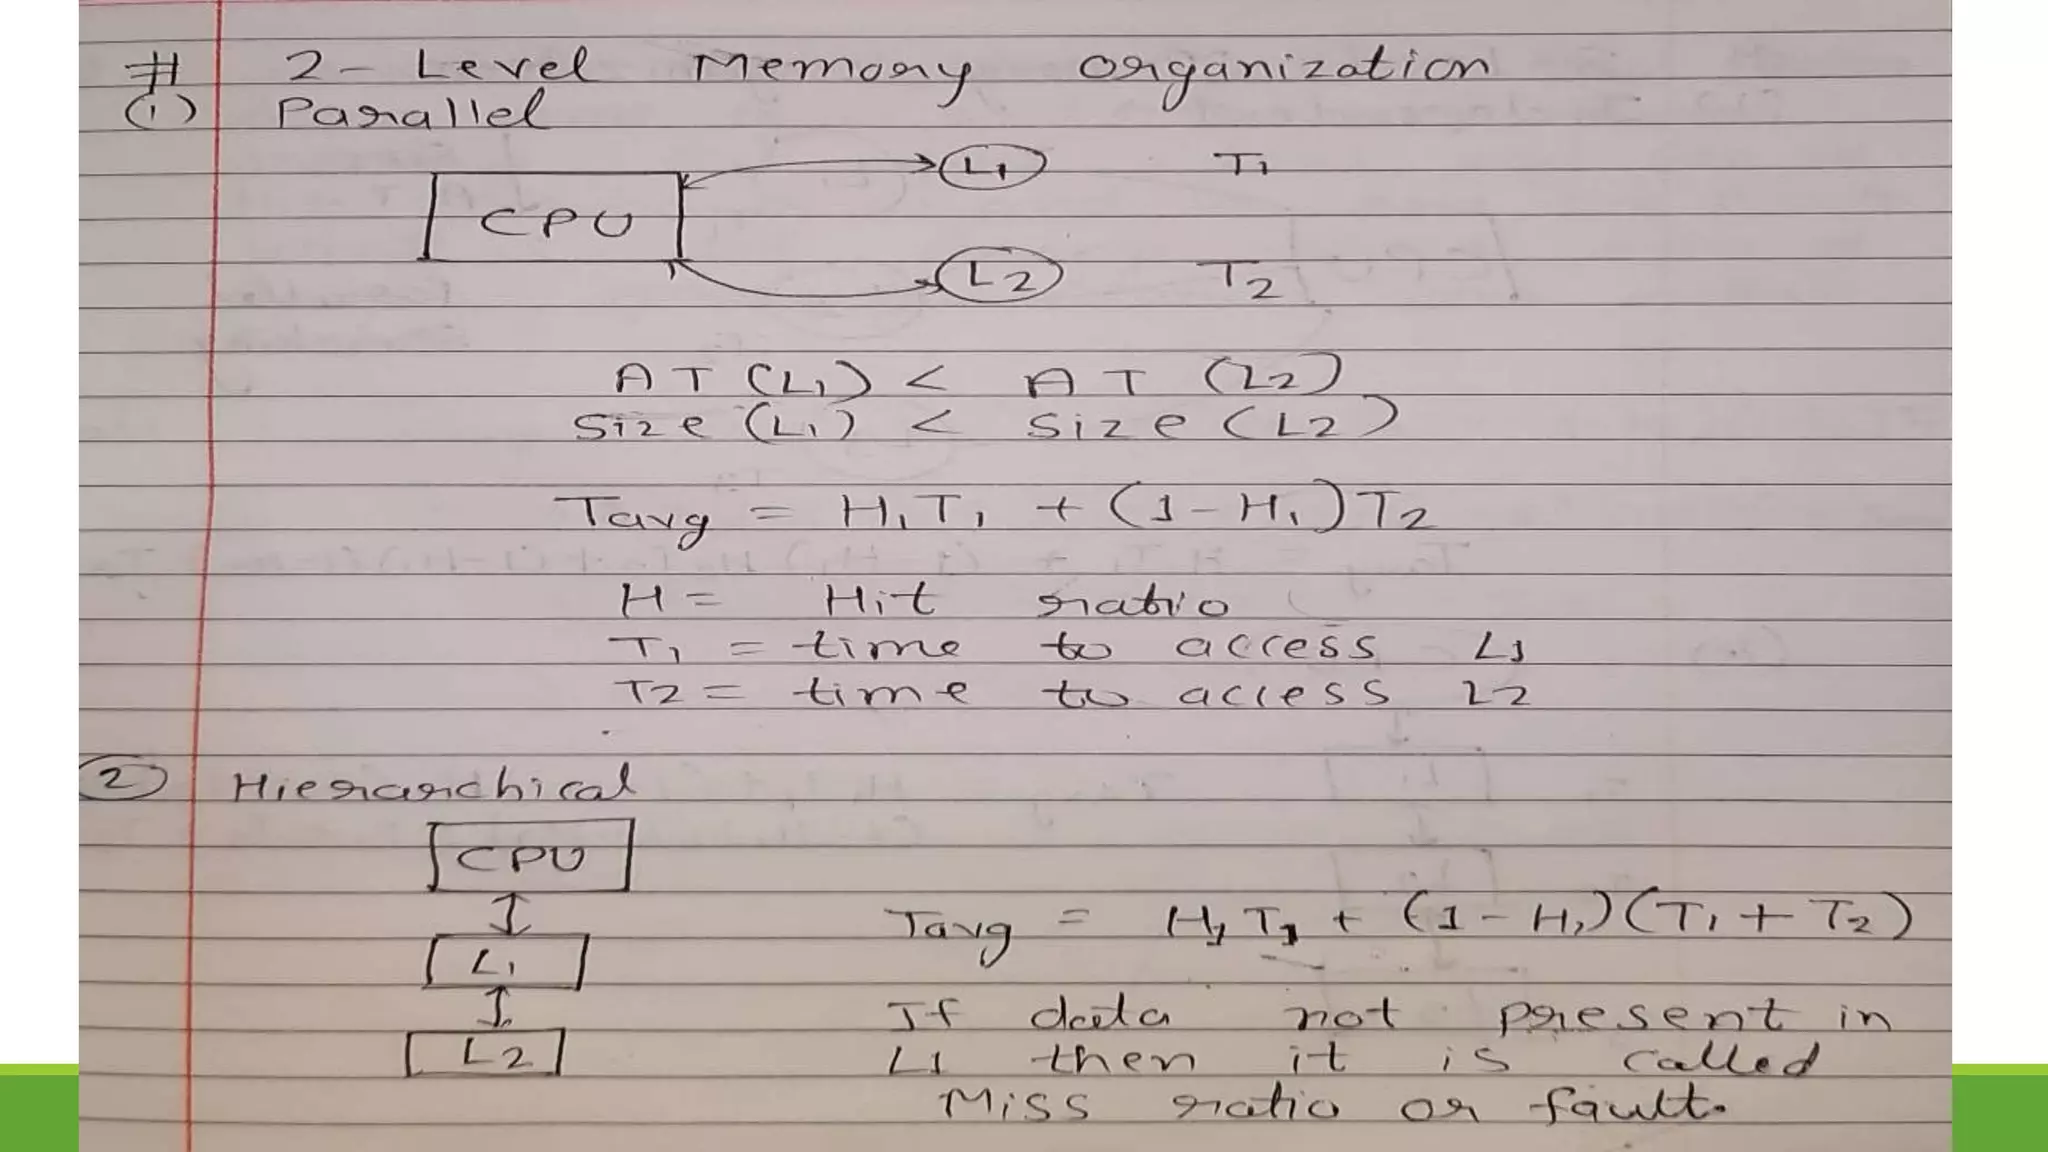 # 2-Level Memory organization
(1) Parallel
L1 T1
CPU
L2 T2
AT (L1) < AT (L2)
Size (L1) < Size (L2)
Tavg = H1T1 + (1-H1)T2
H = Hit ratio
T1 = time to access L1
T2 = time to access L2
2 Hierarchical
CPU
Tavg = H1T1 + (1-H1)(T1+T2)
L1
If data not present in
L2
L1 then it is called
Miss ratio or fault.